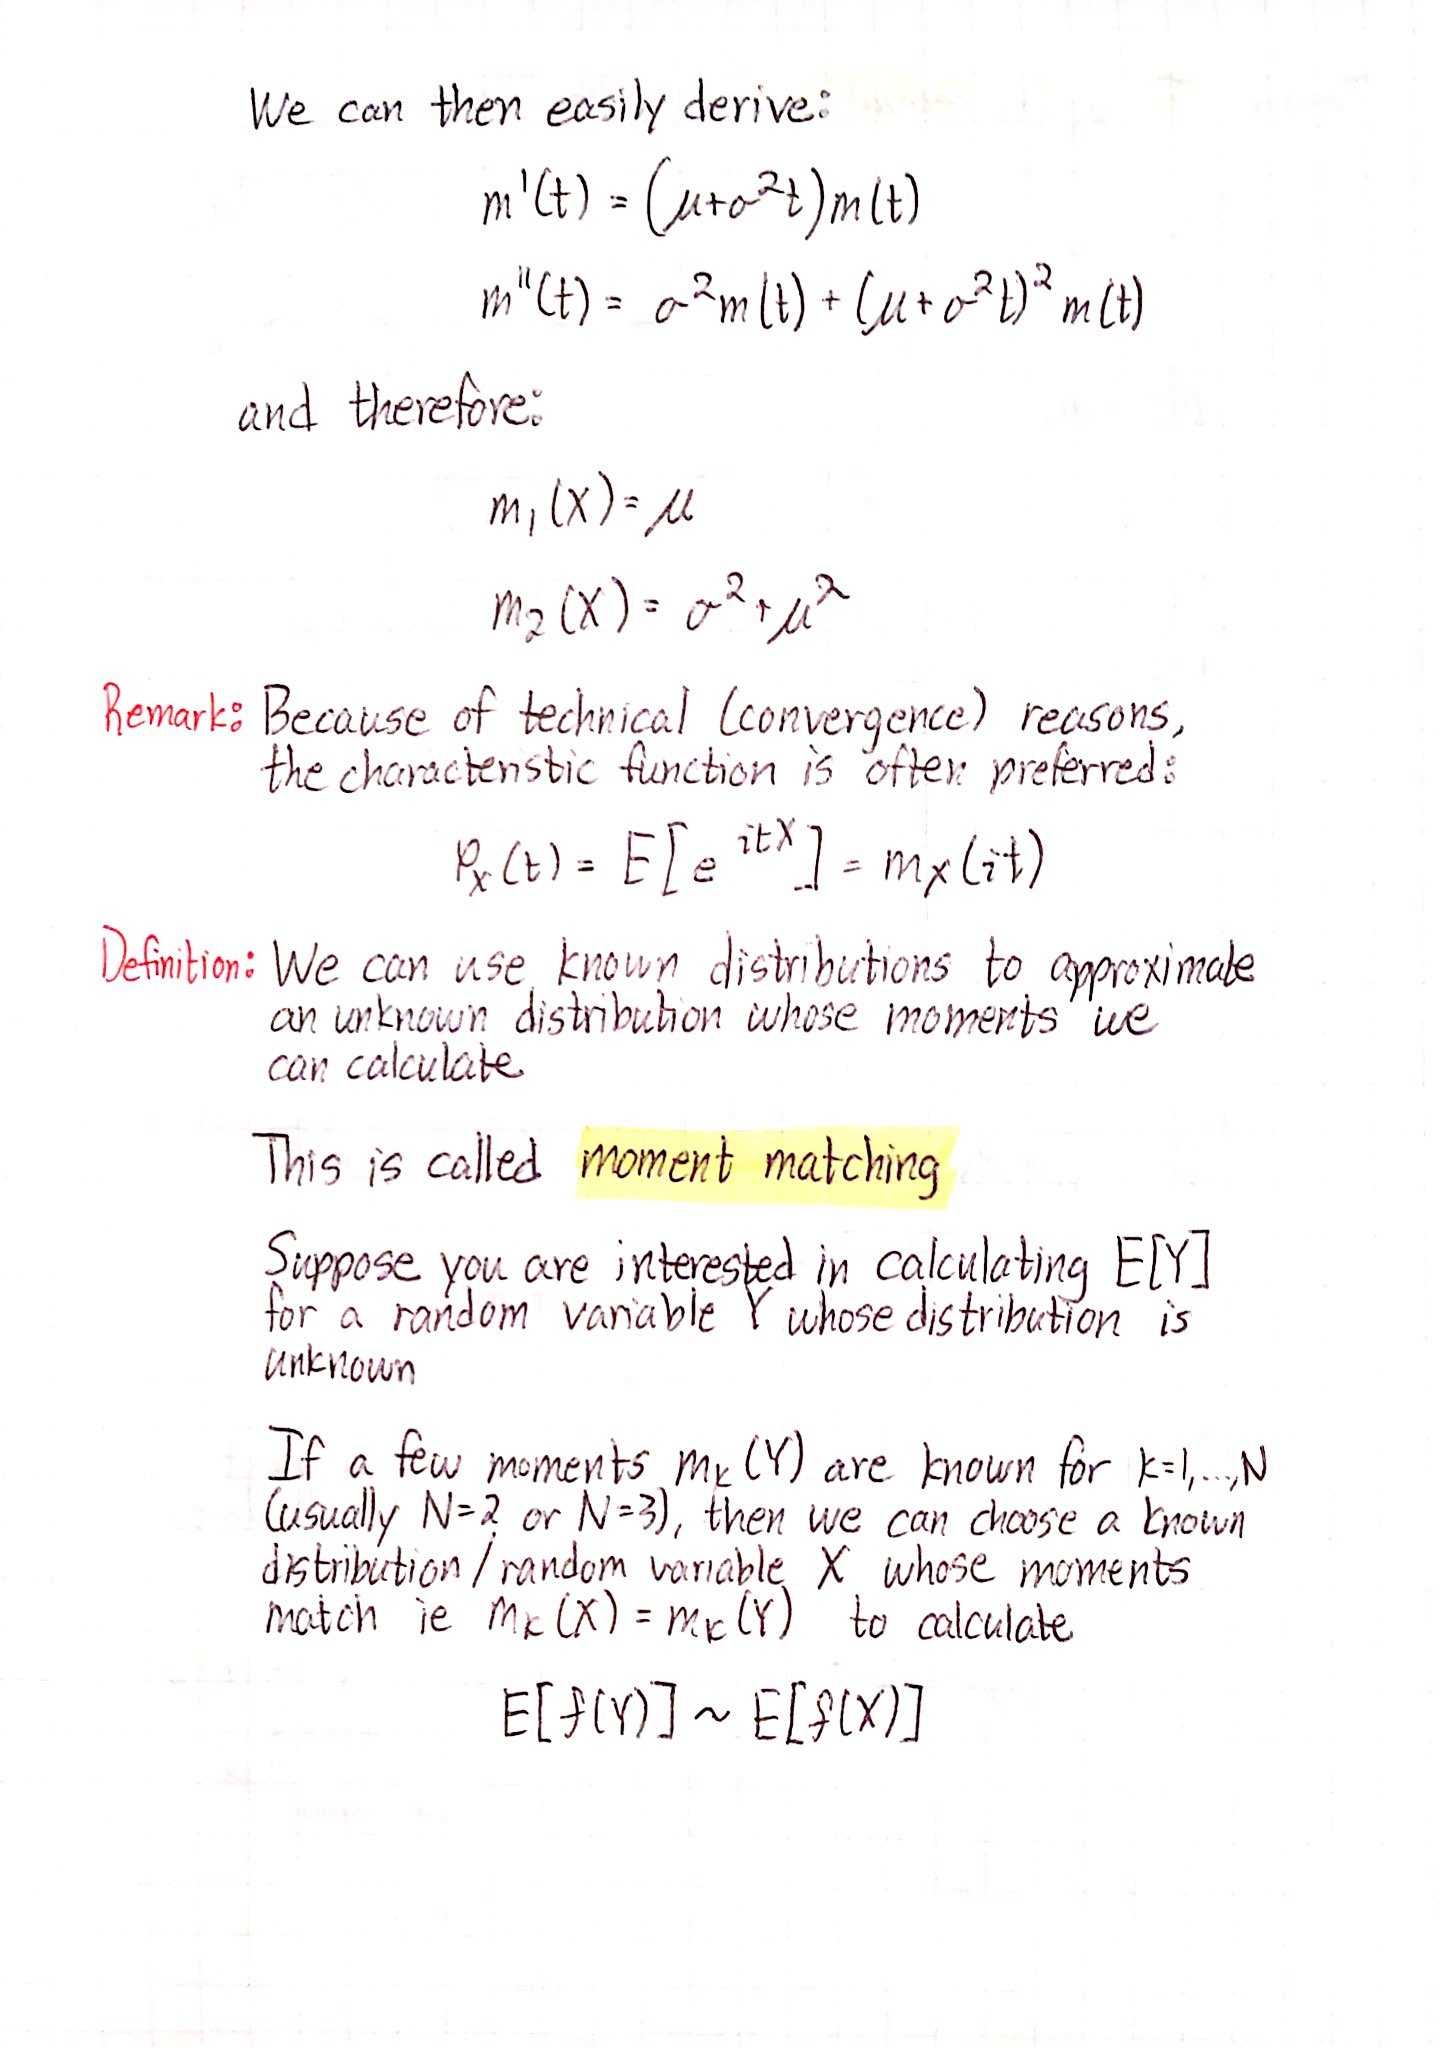 We can then easily derive:
m'(t) = (μ+σ²t)m(t)
m"(t) = σ²m(t) + (μ+σ²t)²m(t)
and therefore:
m₁(X) = μ
m₂(X) = σ²+μ²
Remark: Because of technical (convergence) reasons,
the characteristic function is often preferred:
φₓ(t) = E[e^{itX}] = mₓ(it)
Definition: We can use known distributions to approximate
an unknown distribution whose moments we
can calculate
This is called moment matching
Suppose you are interested in calculating E[Y]
for a random variable Y whose distribution is
unknown
If a few moments mₖ(Y) are known for k=1,...,N
(usually N=2 or N=3), then we can choose a known
distribution / random variable X whose moments
match ie mₖ(X) = mₖ(Y) to calculate
E[f(Y)] ~ E[f(X)]